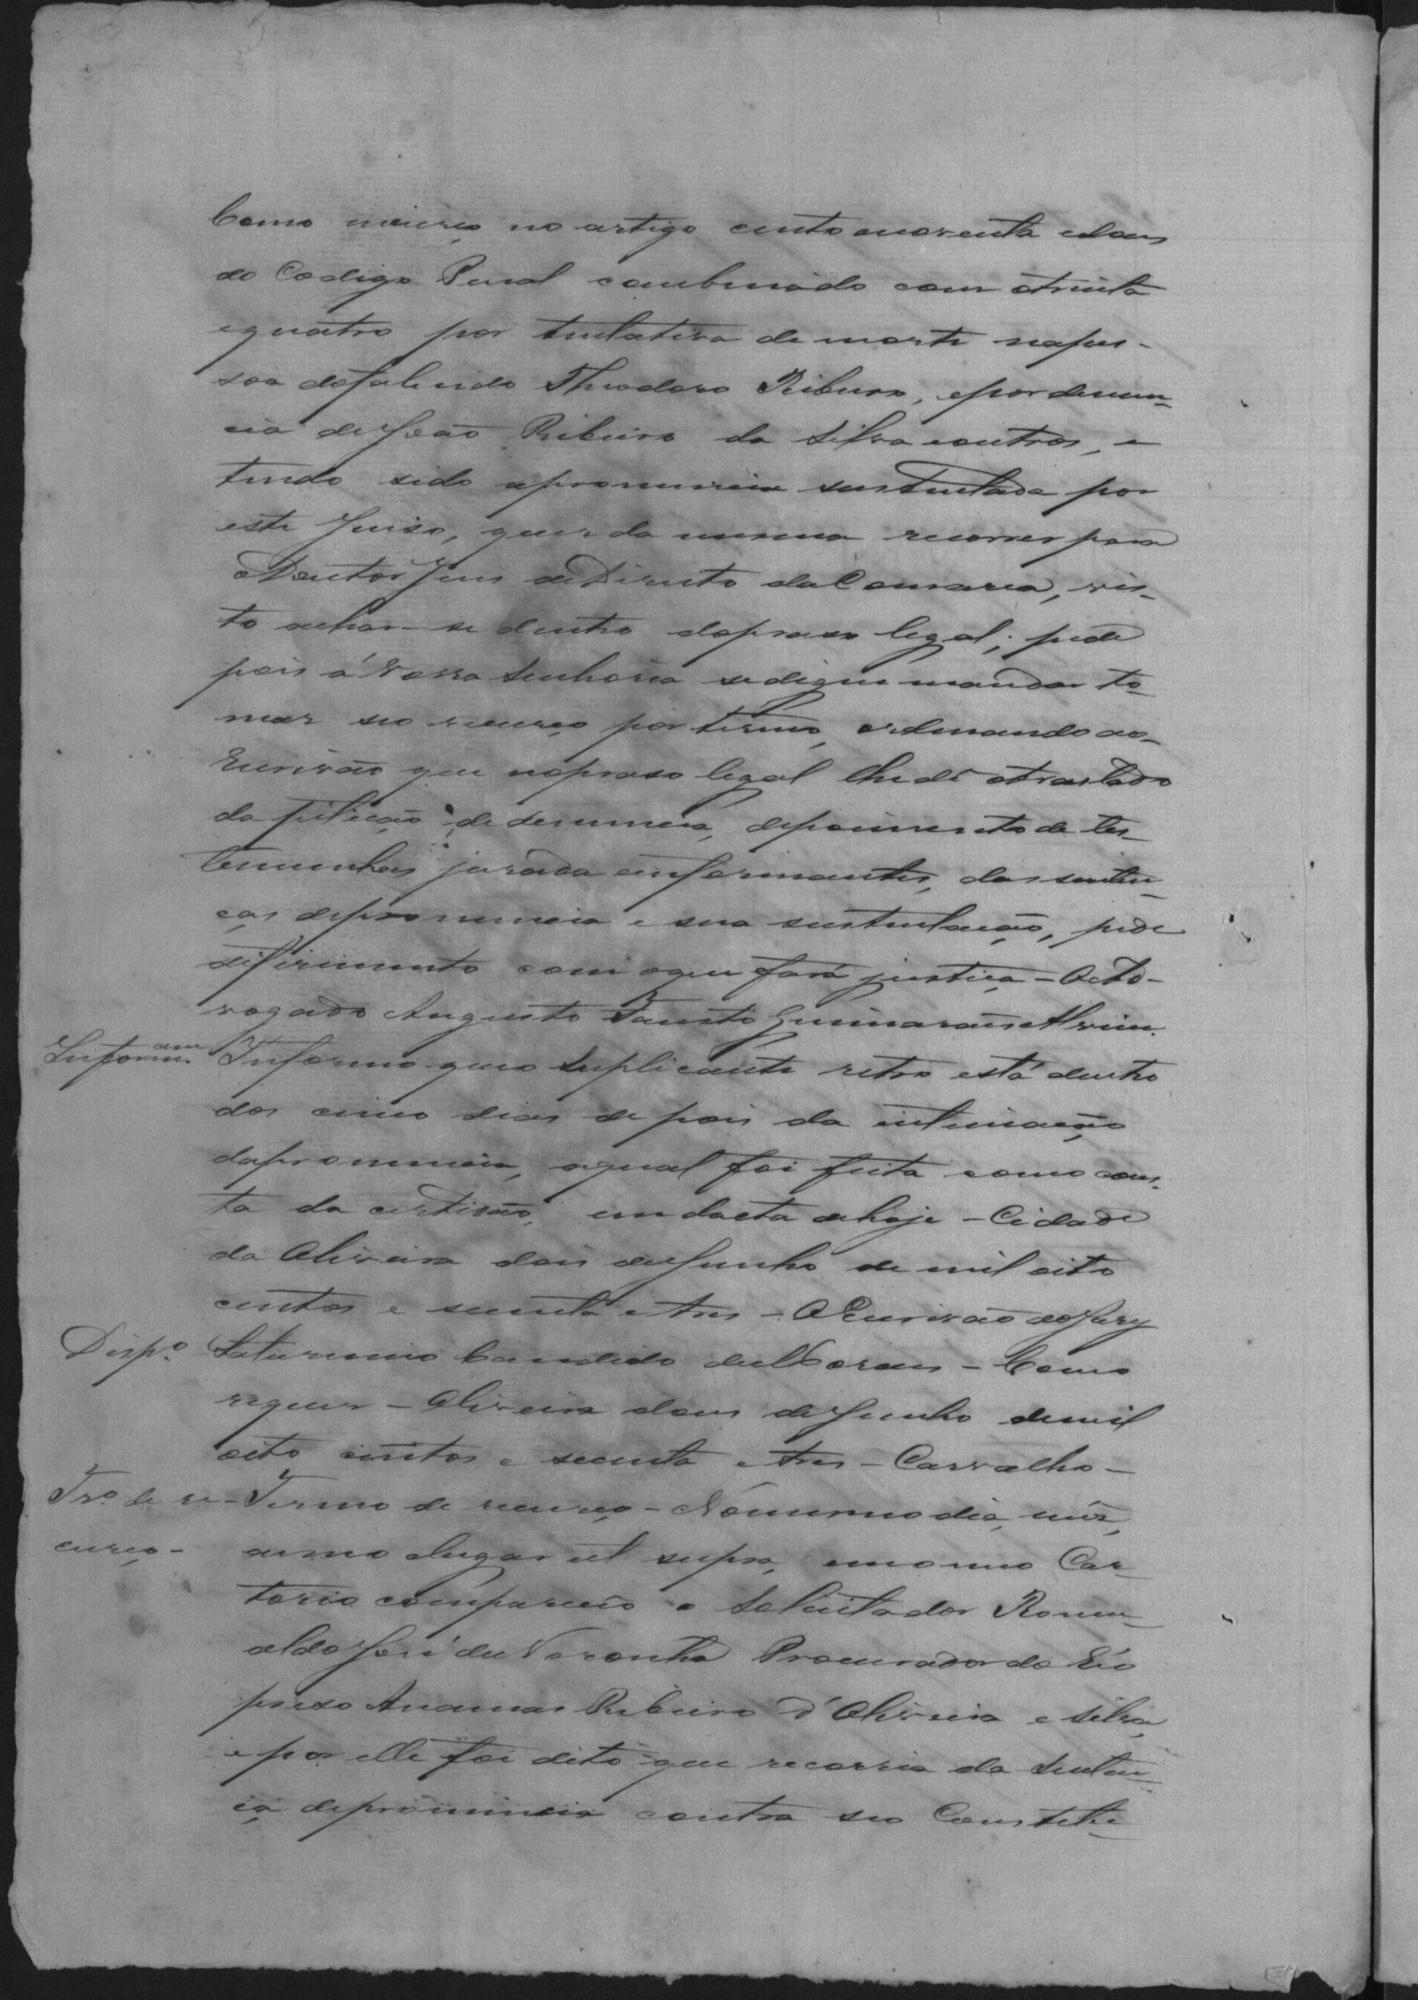 Como incurço no artigo cento enoventa edous
do Codigo Penal combinado com otrinta
equatro por tentativa de morte napes-
soa dofalecido Theodoro Ribeiro, epordenun-
cia deJoão Ribeiro da Silva eoutros, e
tendo sido apronuncia sustentada por
este Juiso, quer da mesma recorrer para
oDoutor Juis deDireito daComarca, vis-
to achar-se dentro dopraso legal; pede
pois á Vossa Senhoria sedigne mandar to-
mar seo recurço por termo, ordenando ao-
Escrivão que nopraso legal lhe dê otraslado
da petição de denuncia, depoimento de tes-
temunhas jurada einformantes, das senten-
ças depronuncia e sua sustentação, pede
deferimento com oque fará justiça - OAdvo-
vogado Augusto Fausto Guimarães Alvim.
Inform.am Informo queo Suplicante retro está dentro
dos cinco dias depois da intimação
dapronuncia, aqual foi feita como cons-
ta da certidão, em dacta dehoje - Cidade
da Oliveira dois deJunho de mil oito
centos e secenta etres - OEscrivão doJury
Desp.o Saturnino Candido deMoraes - Como
requer - Oliveira dous deJunho demil
oito centos e secenta etres - Carvalho -
Tr.o de re- Termo de recurço - Nómesmo dia, mês,
curço - anno elugar ut supra, emomeo Car-
torio compareceo o Solicitador Romu-
aldo José de Noronha Procurador do Réo
preso Ananias Ribeiro d'Oliveira e Silva,
e por elle foi dito que recorria da Senten-
ça depronuncia contra seo Constitu-